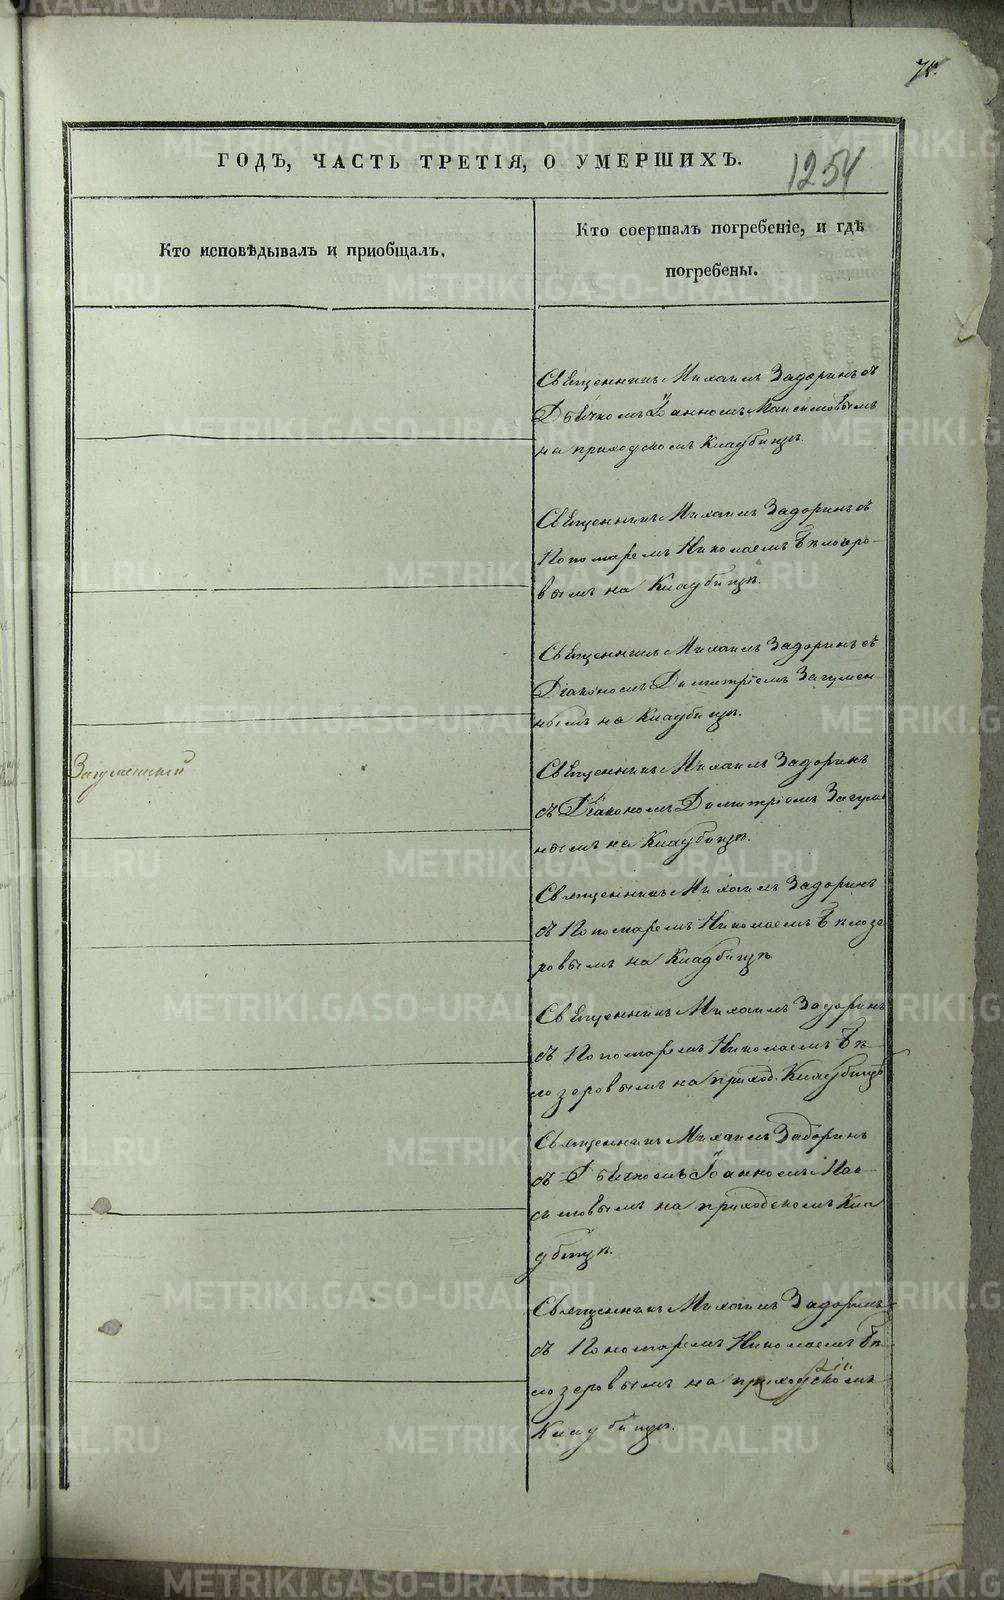 ГОДЪ, ЧАСТЬ ТРЕТІЯ, О УМЕРШИХЪ.
1254
Кто исповѣдывалъ и приобщалъ.
Кто соершалъ погребеніе, и гдѣ
погребены.
Священникъ Михаилъ Задоринъ съ
Дьячкомъ Іоанномъ
на приходскомъ Кладбищѣ.
Священникъ Михаилъ Задоринъ съ
Пономаремъ Николаемъ Бѣлозеро-
вымъ на Кладбищѣ.
Священникъ Михаилъ Задоринъ съ
Діакономъ Димитріемъ Загумен-
нымъ на Кладбищѣ.
Загуменный
Священникъ Михаилъ Задоринъ
съ Діакономъ Димитріемъ Загумен
нымъ на Кладбищѣ.
Священникъ Михаилъ Задоринъ
съ Пономаремъ Николаемъ Бѣлозе
ровымъ на Кладбищѣ
Священникъ Михаилъ Задоринъ
съ Пономаремъ Николаемъ Бѣ-
лозеровымъ на приход. Кладбищѣ
Священникъ Михаилъ Задоринъ
съ Дьячкомъ Іоанномъ
на приходскомъ Кла
дбищѣ.
Священникъ Михаилъ Задоринъ
съ Пономаремъ Николаемъ Бѣ-
лозеровымъ на приходскомъ
Кладбищѣ.
METRIKI.GASO-URAL.RU